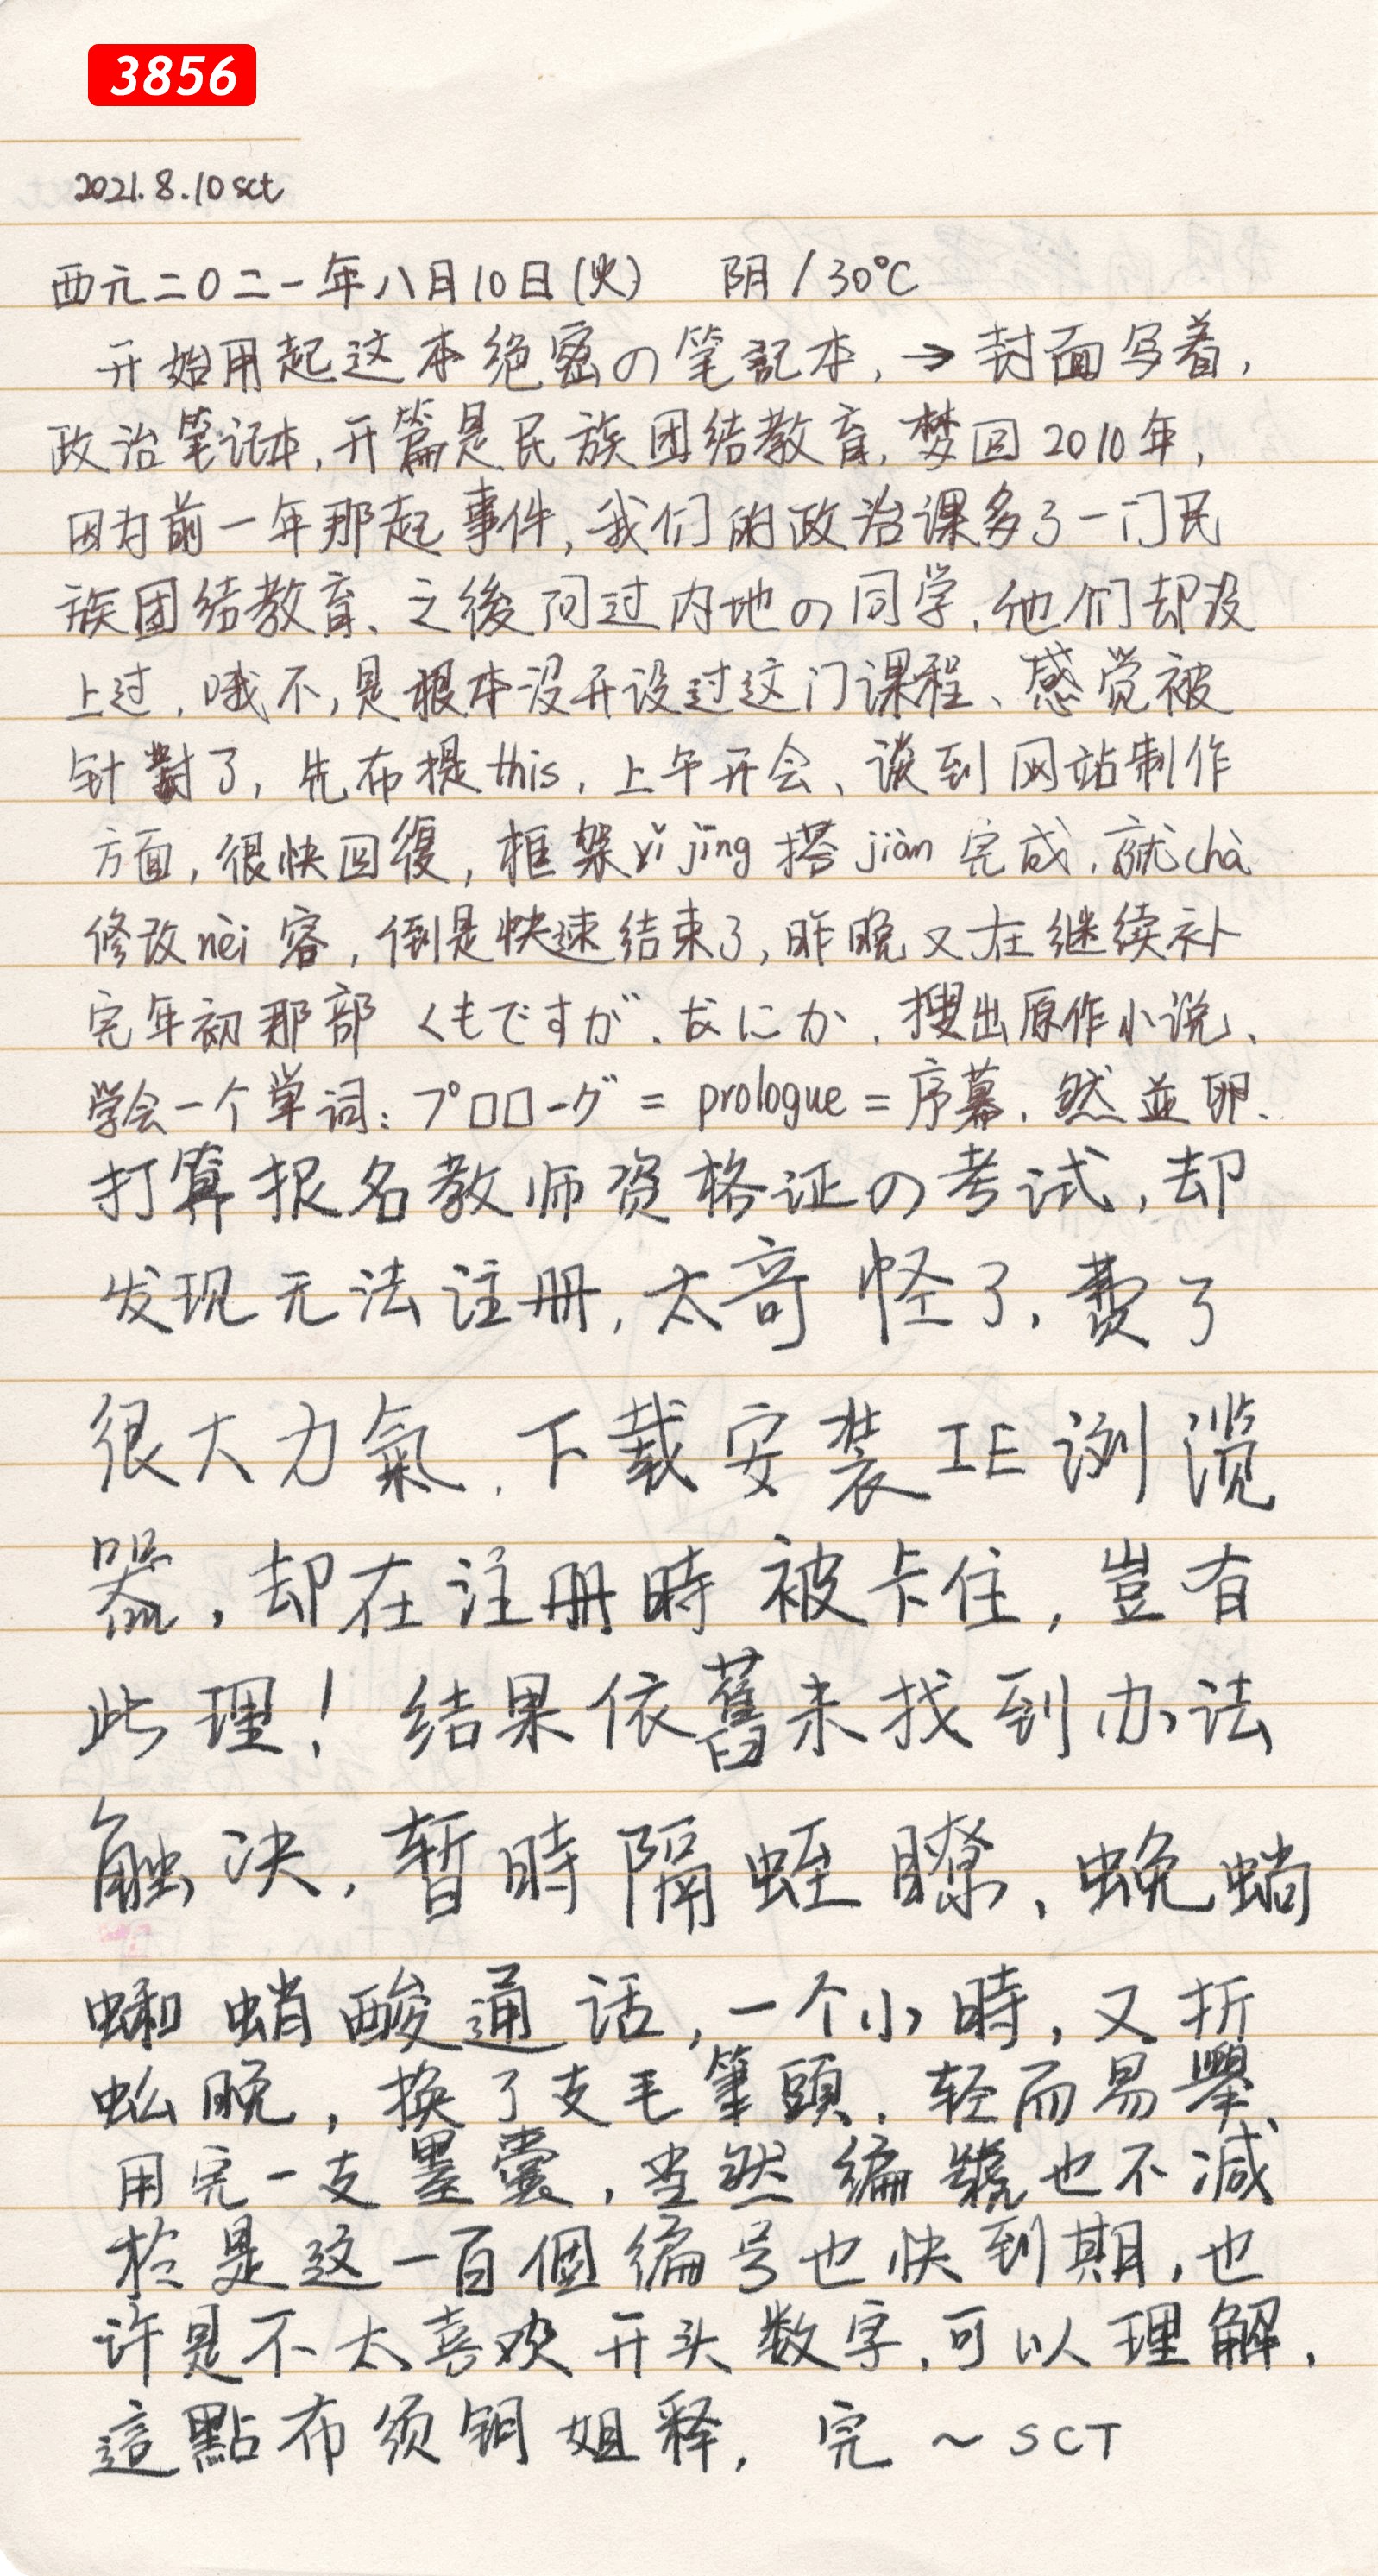 3856
2021.8.10 sct
西元二〇二一年八月10日(火) 阴/30℃
开始用起这本绝密の笔記本,→封面写着,
政治笔记本,开篇是民族团结教育,梦回2010年,
因为前一年那起事件,我们的政治课多了一门民
族团结教育、之後问过内地の同学,他们却没
上过,哦不,是根本没开设过这门课程、感觉被
针對了,先布提this,上午开会、谈到网站制作
方面,很快回復,框架yǐ jīng 搭 jiàn 完成,就chà
修改nèi容,倒是快速结束了,昨晚又在继续补
完年初那部 くもですが、なにか,搜出原作小说、
学会一个单词:プロローグ=prologue=序幕,然並卵、
打算报名教师资格证の考试,却
发现无法注册,太奇怪了,费了
很大力氣,下载安装IE浏览
器,却在注册時被卡住,豈有
此理!结果依舊未找到办法
触决,暂時隔蛭瞭、蛻蜪
蜘蛸酸通话,一个小時,又折
蚣晚,换了支毛筆頭,轻而易舉
用完一支墨囊,当然编號也不减
於是这一百個编号也快到期,也
许是不太喜欢开头数字,可以理解,
這點布须钼姐释,完~SCT